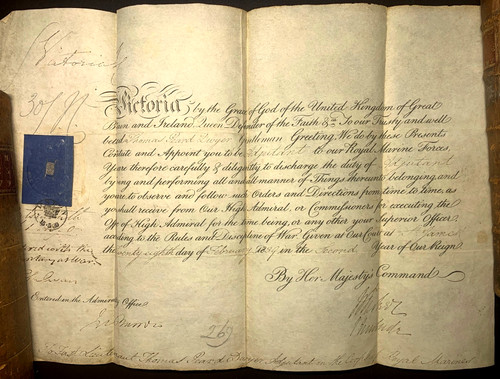 Victoria R
30/
Victoria by the Grace of God of the United Kingdom of Great
and Ireland, Queen Defender of the Faith &c. To our Trusty and well
Thomas Peard Dwyer Gentleman Greeting. We do by these Presents
Constitute and Appoint you to be Adjutant to our Royal Marine Forces.
You are therefore carefully & diligently to discharge the duty of Adjutant
by doing and performing all and all manner of Things thereunto belonging, and
you are to observe and follow such Orders and Directions from time to time, as
you shall receive from Our High Admiral, or Commissioners for executing the
Office of High Admiral for the time being, or any other your Superior Officer,
according to the Rules and Discipline of War. Given at Our Court at St James's
the twenty eighth day of February 1839 in the Second Year of Our Reign
By Her Majesty's Command
Entered in the Admiralty Office
269
First Lieutenant Thomas Peard Dwyer Adjutant in Royal Marines